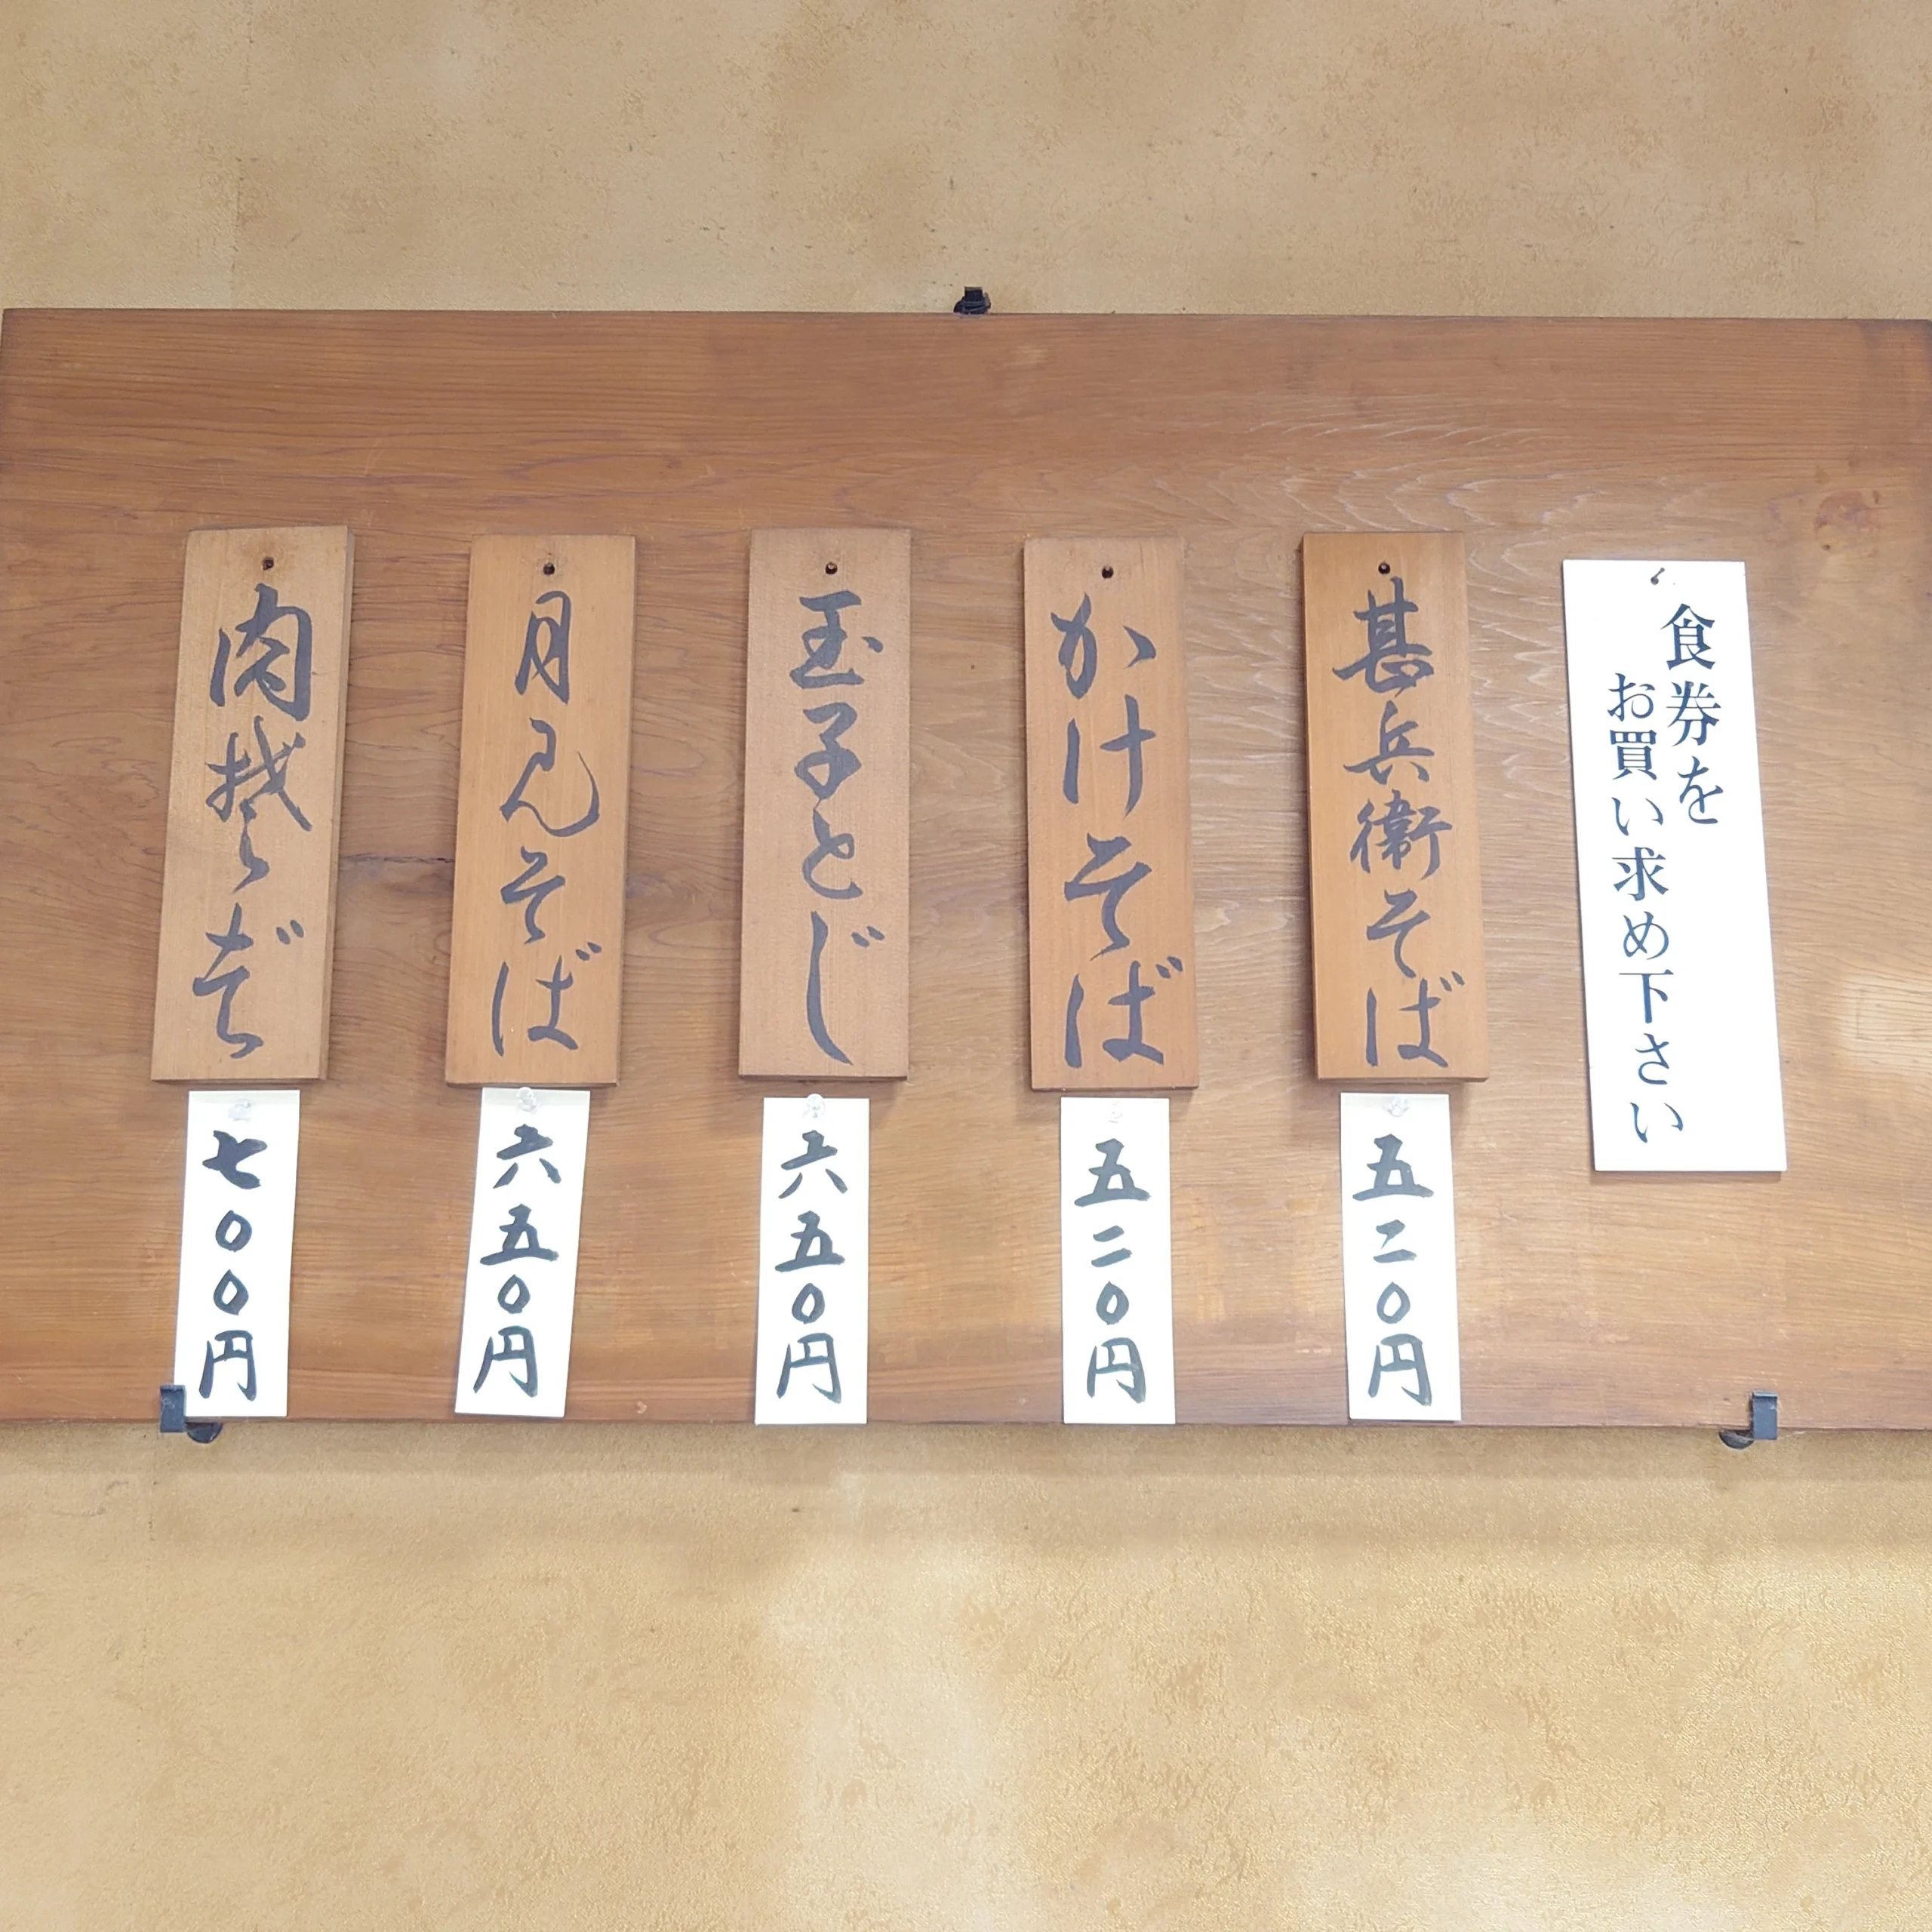 食券を
お買い求め下さい
甚兵衛そば
五二〇円
かけそば
五二〇円
玉子とじ
六五〇円
月見そば
六五〇円
肉そば
七〇〇円